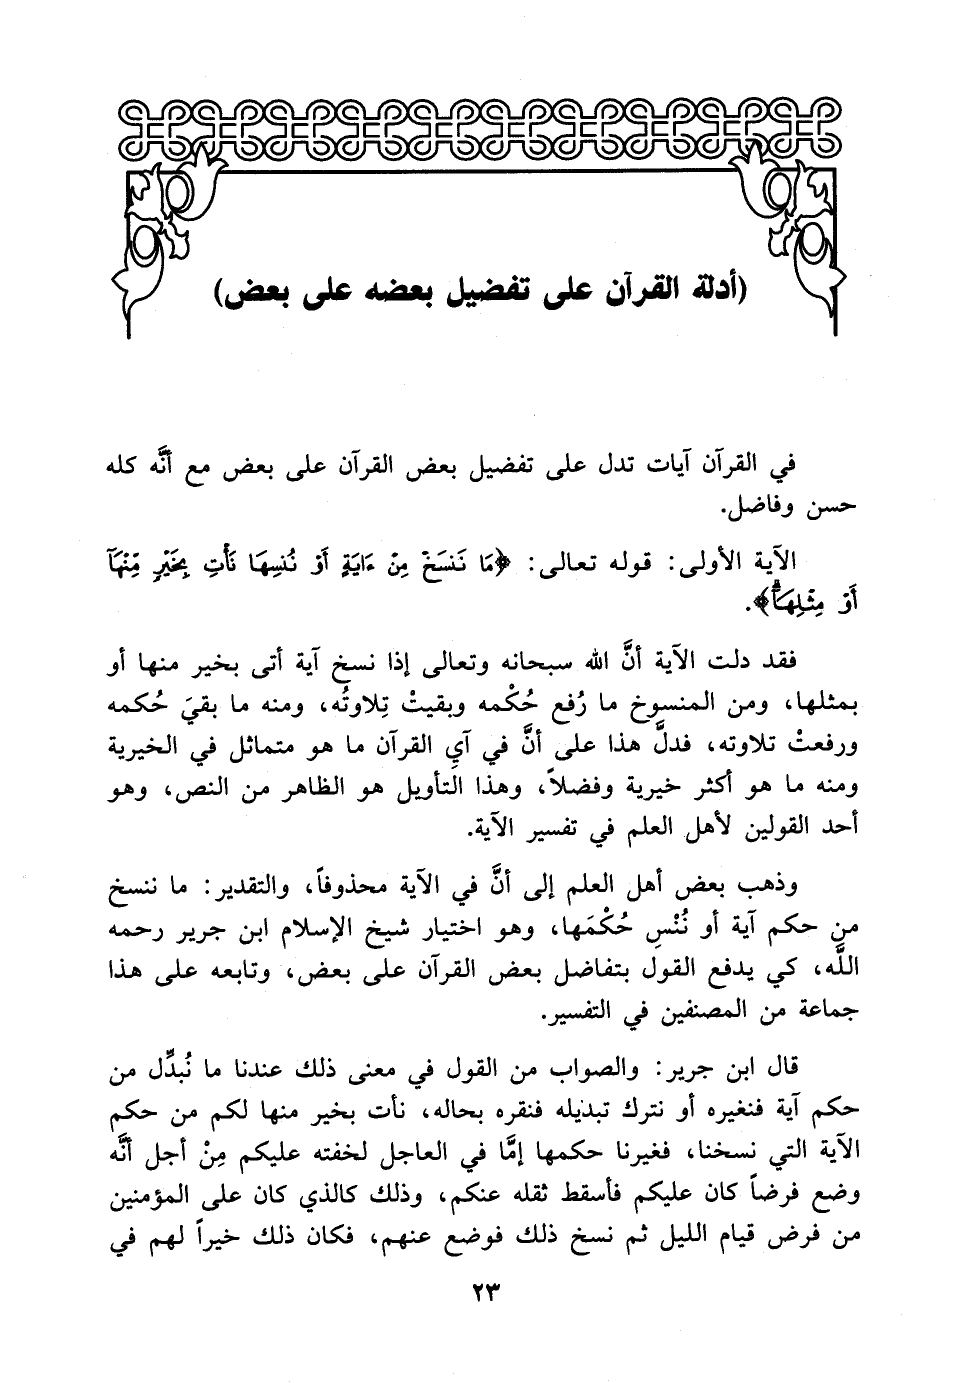 (أدلة القرآن على تفضيل بعضه على بعض)
في القرآن آيات تدل على تفضيل بعض القرآن على بعض مع أنَّه كله
حسن وفاضل.
الآية الأولى: قوله تعالى: ﴿مَا نَنسَخْ مِنْ ءَايَةٍ أَوْ نُنسِهَا نَأْتِ بِخَيْرٍ مِّنْهَآ
أَوْ مِثْلِهَآۗ﴾.
فقد دلت الآية أنَّ الله سبحانه وتعالى إذا نسخ آية أتى بخير منها أو
بمثلها، ومن المنسوخ ما رُفع حُكْمه وبقيتْ تِلاوتُه، ومنه ما بقيَ حُكمه
ورفعتْ تلاوته، فدلَّ هذا على أنَّ في آيِ القرآن ما هو متماثل في الخيرية
ومنه ما هو أكثر خيرية وفضلاً، وهذا التأويل هو الظاهر من النص، وهو
أحد القولين لأهل العلم في تفسير الآية.
وذهب بعض أهل العلم إلى أنَّ في الآية محذوفاً، والتقدير: ما ننسخ
من حكم آية أو نُنْسِ حُكْمَها، وهو اختيار شيخ الإسلام ابن جرير رحمه
اللَّه، كي يدفع القول بتفاضل بعض القرآن على بعض، وتابعه على هذا
جماعة من المصنفين في التفسير.
قال ابن جرير: والصواب من القول في معنى ذلك عندنا ما نُبدِّل من
حكم آية فنغيره أو نترك تبديله فنقره بحاله، نأت بخير منها لكم من حكم
الآية التي نسخنا، فغيرنا حكمها إمَّا في العاجل لخفته عليكم مِنْ أجل أنَّه
وضع فرضاً كان عليكم فأسقط ثقله عنكم، وذلك كالذي كان على المؤمنين
من فرض قيام الليل ثم نسخ ذلك فوضع عنهم، فكان ذلك خيراً لهم في
٢٣